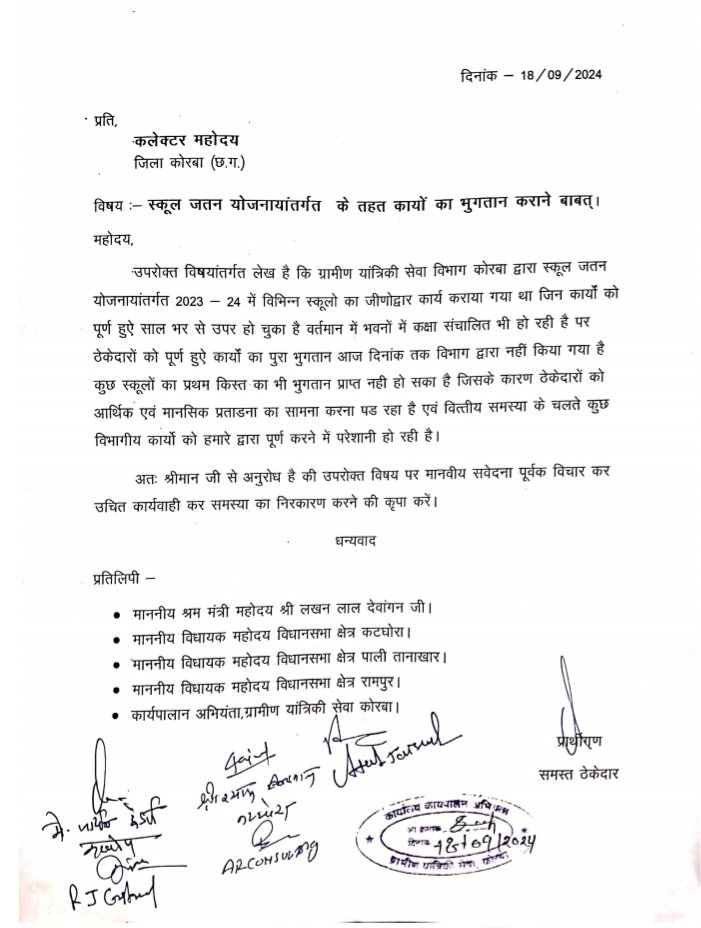 दिनांक – 18/09/2024
प्रति,
कलेक्टर महोदय
जिला कोरबा (छ.ग.)
विषय :– स्कूल जतन योजनायांतर्गत के तहत कायों का भुगतान कराने बाबत्।
महोदय,
उपरोक्त विषयांतर्गत लेख है कि ग्रामीण यांत्रिकी सेवा विभाग कोरबा द्वारा स्कूल जतन
योजनायांतर्गत 2023 – 24 में विभिन्न स्कूलो का जीणोद्वार कार्य कराया गया था जिन कार्यों को
पूर्ण हुऐ साल भर से उपर हो चुका है वर्तमान में भवनों में कक्षा संचालित भी हो रही है पर
ठेकेदारों को पूर्ण हुऐ कार्यों का पुरा भुगतान आज दिनांक तक विभाग द्वारा नहीं किया गया है
कुछ स्कूलों का प्रथम किस्त का भी भुगतान प्राप्त नही हो सका है जिसके कारण ठेकेदारों को
आर्थिक एवं मानसिक प्रताडना का सामना करना पड रहा है एवं वित्तीय समस्या के चलते कुछ
विभागीय कार्यो को हमारे द्वारा पूर्ण करने में परेशानी हो रही है।
अतः श्रीमान जी से अनुरोध है की उपरोक्त विषय पर मानवीय सवेदना पूर्वक विचार कर
उचित कार्यवाही कर समस्या का निरकारण करने की कृपा करें।
धन्यवाद
प्रतिलिपी –
• माननीय श्रम मंत्री महोदय श्री लखन लाल देवांगन जी।
• माननीय विधायक महोदय विधानसभा क्षेत्र कटघोरा।
• माननीय विधायक महोदय विधानसभा क्षेत्र पाली तानाखार।
• माननीय विधायक महोदय विधानसभा क्षेत्र रामपुर।
• कार्यपालान अभियंता,ग्रामीण यांत्रिकी सेवा कोरबा।
प्रार्थीगण
समस्त ठेकेदार
कार्यालय कार्यपालन
दिनांक 18/09/2024
ग्रामीण यांत्रिकी सेवा, कोरबा
AR CONSULTING
R J